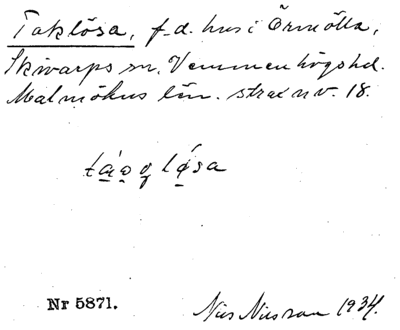 Taklösa, f.d. hus i Örmölla,
Skivarps sn. Vemmenhögs hd.
Malmöhus län. strax n v. 18.
Nr 5871.
Nils Nilsson 1934.